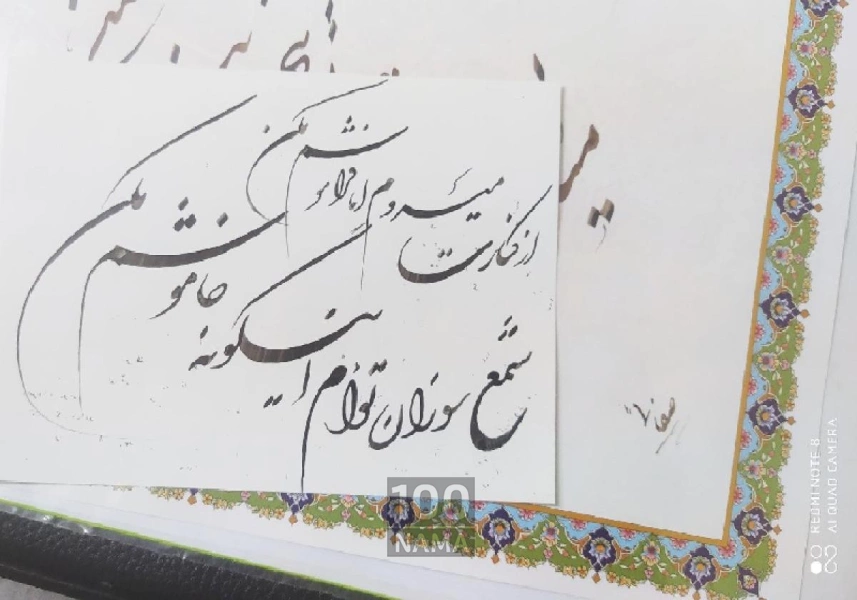 از کنارت میروم اما فراموشم مکن
شمع سوزان توام اینگونه خاموشم مکن
100
NAMA
REDMI NOTE 8
AI QUAD CAMERA